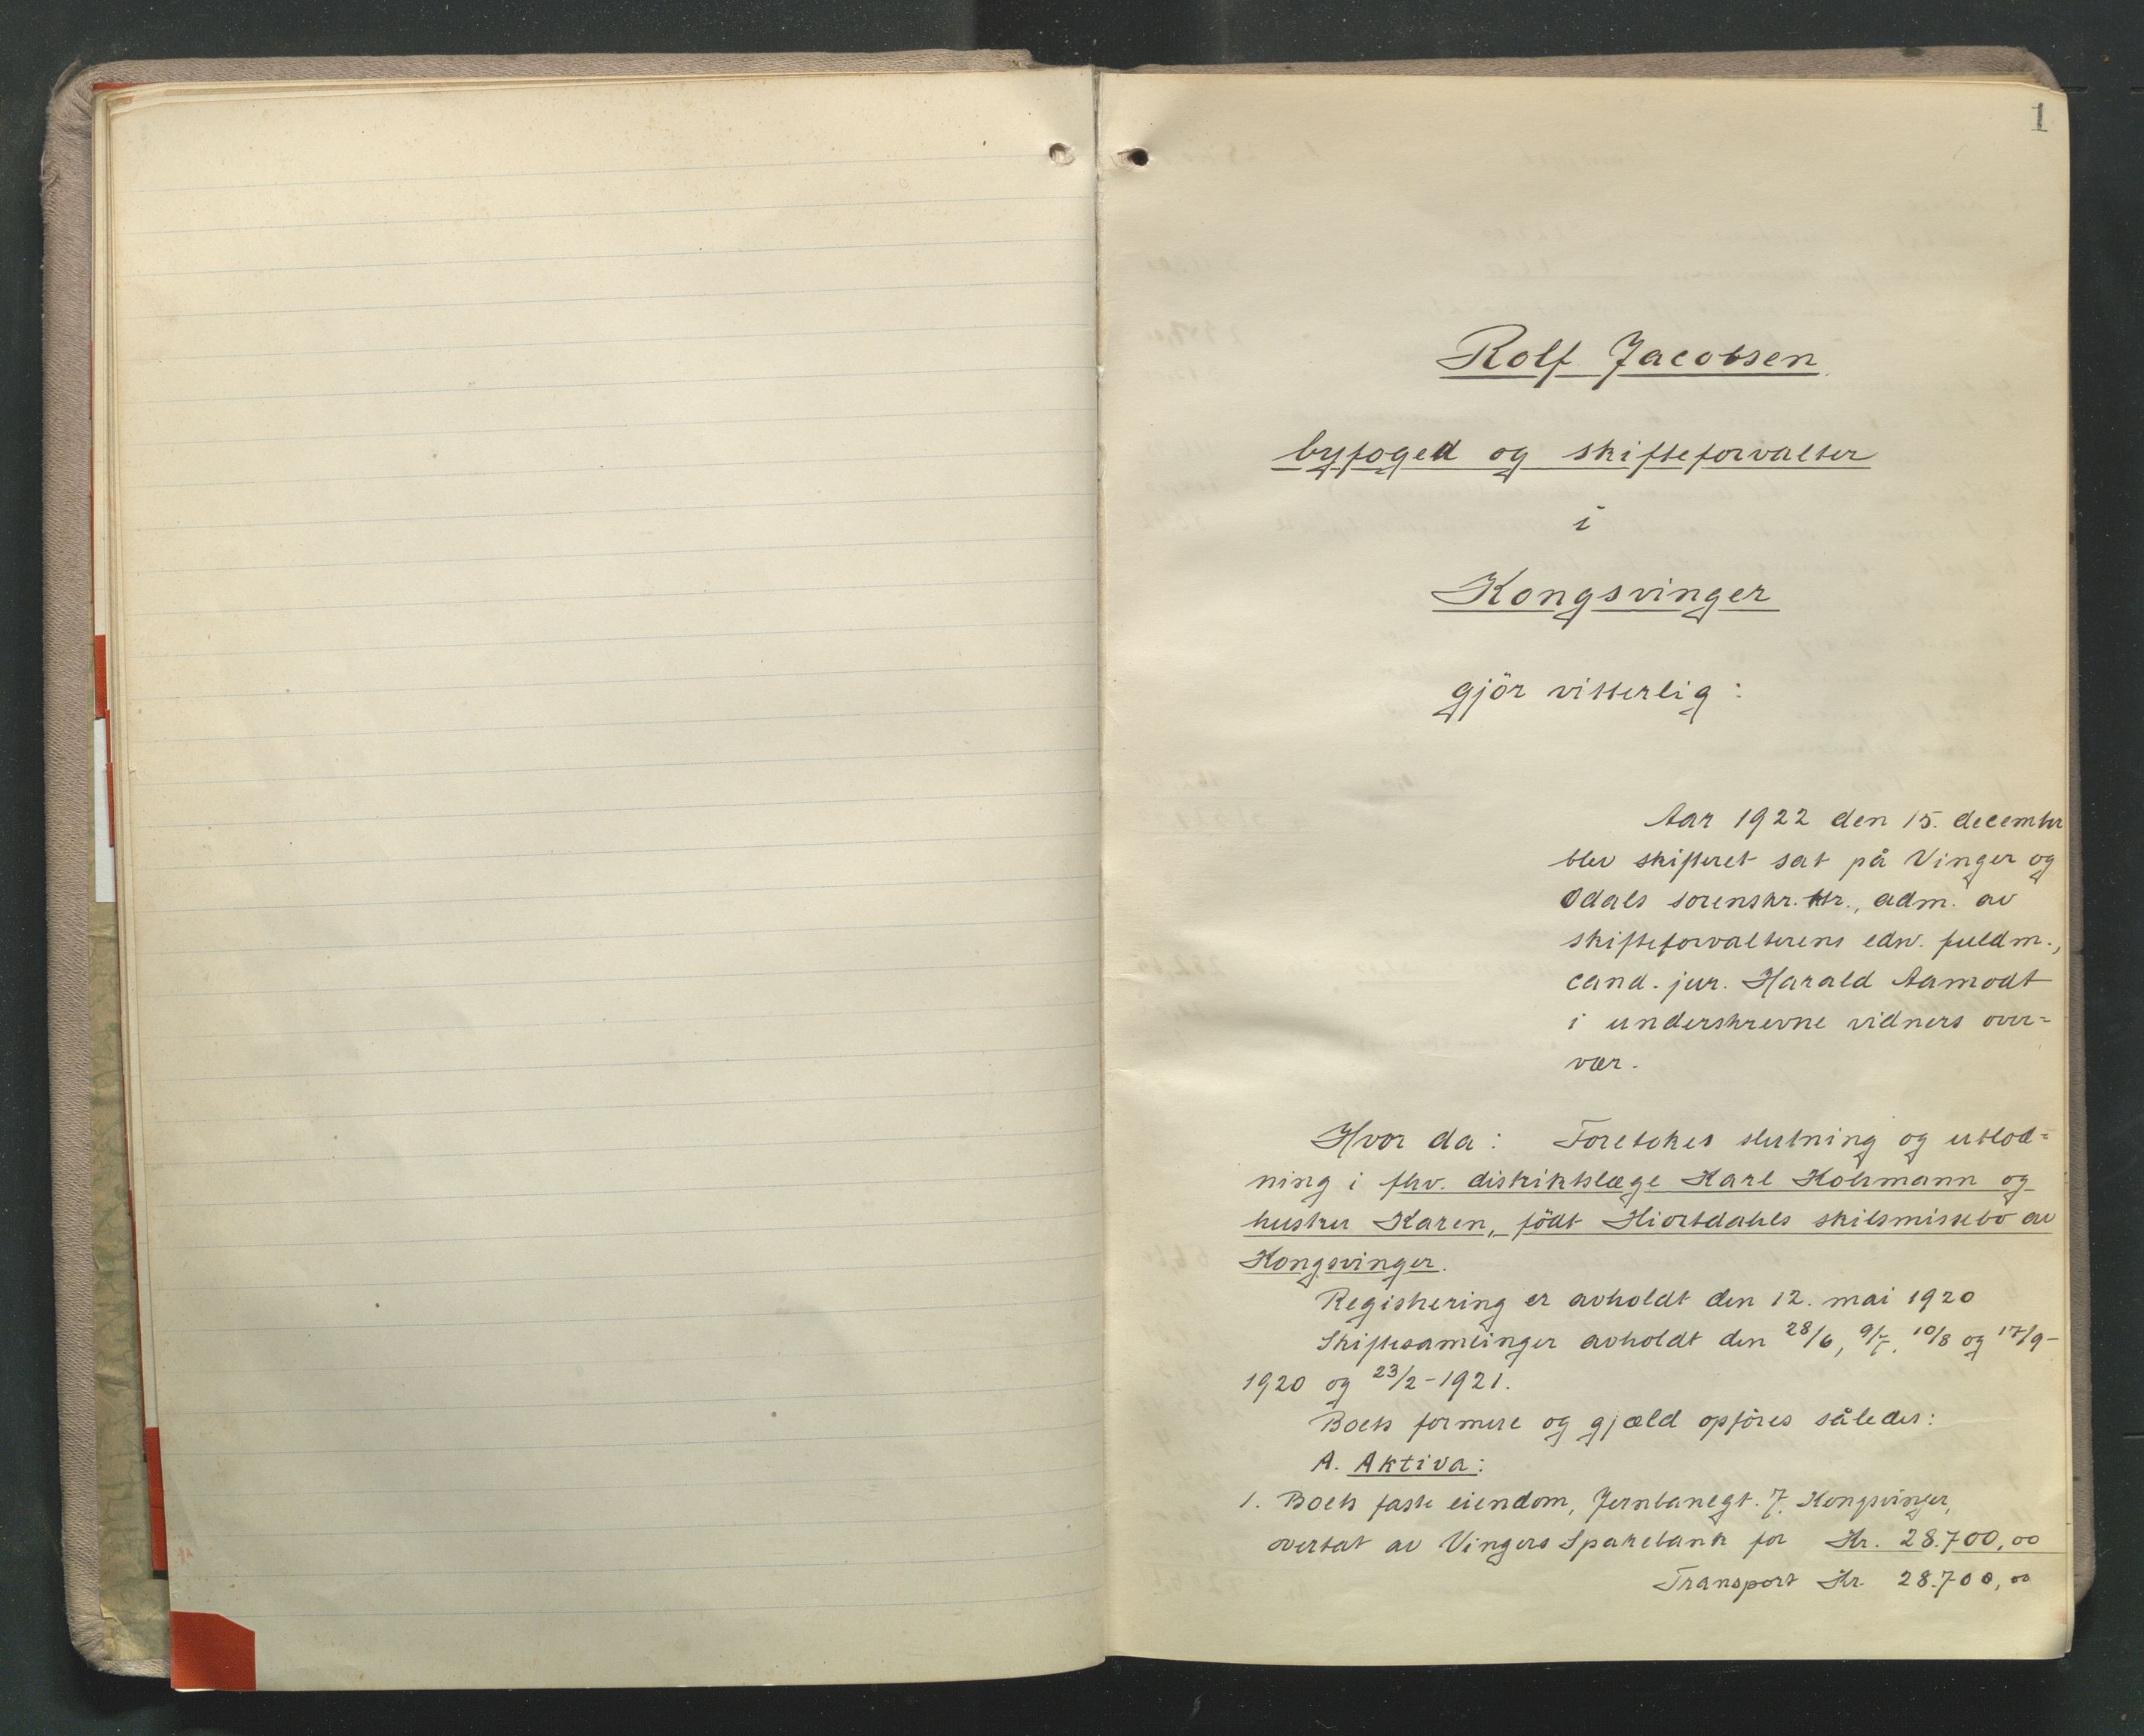 1
Rolf Jacobsen
byfoged og skifteforvalter
i
Kongsvinger
gjör vitterlig:
Aar 1922 den 15. decembr
blev skifteret sat på Vinger og
Odals sorenskr. ktr., adm. av
skifteforvalterens edsv. fuldm.,
cand. jur. Harald Aamodt
i underskrevne vidners over=
vær.
Hvor da: Foretokes slutning og utlod=
ning i fhv. distriktslæge Karl Kolrmann og
hustru Karen, födt Hiortdahls skilsmissebo av
Kongsvinger.
Registrering er avholdt den 12. mai 1920
Skiftesamlinger avholdt den 28/6, 9/7, 10/8 og 17/9-
1920 og 23/2-1921.
Boets formue og gjæld opföres således:
A. Aktiva:
1. Boets faste eiendom, Jernbanegt. 7, Kongsvinger,
overtat av Vingers Sparebank for Kr. 28.700,00
Transport Kr. 28.700,00